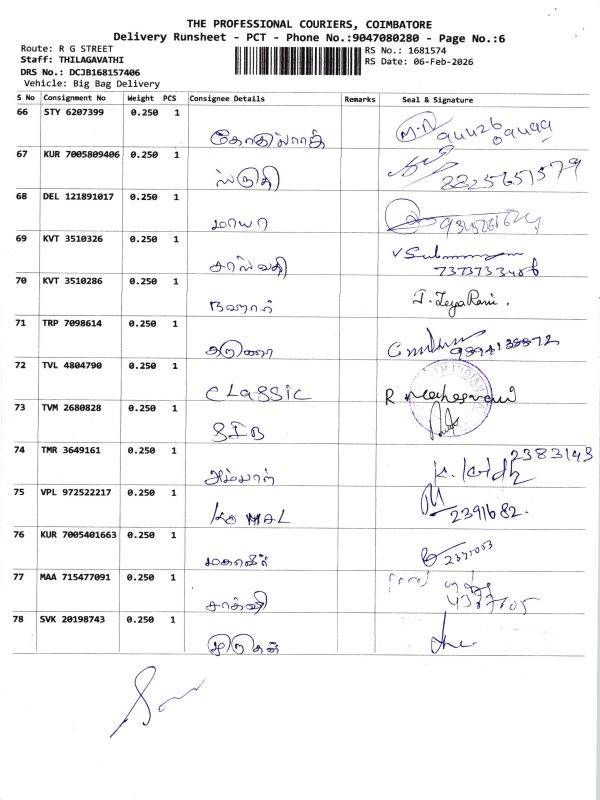 THE PROFESSIONAL COURIERS, COIMBATORE
Delivery Runsheet - PCT - Phone No.:9047080280 - Page No.:6
Route: R G STREET
Staff: THILAGAVATHI
DRS No.: DCJB168157406
Vehicle: Big Bag Delivery
RS No.: 1681574
RS Date: 06-Feb-2026
S No Consignment No Weight PCS Consignee Details Remarks Seal & Signature
66 STY 6207399 0.250 1
67 KUR 7005809406 0.250 1 ஸ்ருதி 8825651579
68 DEL 121891017 0.250 1 மாயா
69 KVT 3510326 0.250 1 சரஸ்வதி 7373733486
70 KVT 3510286 0.250 1 J. JeyaRani.
71 TRP 7098614 0.250 1 அருணா
72 TVL 4804790 0.250 1 CLASSIC R Maheswari
73 TVM 2680828 0.250 1 SIB
74 TMR 3649161 0.250 1 அம்மாள் 2383143
75 VPL 972522217 0.250 1 KOMAL 2391682.
76 KUR 7005401663 0.250 1 மகாவீர்
77 MAA 715477091 0.250 1 சாக்ஷி
78 SVK 20198743 0.250 1 முருகன்